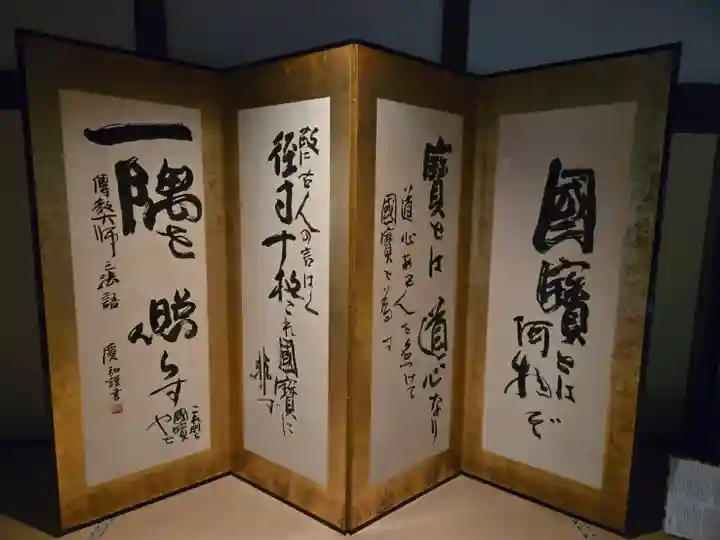 國寶とは
何物ぞ
寶とは道心なり
道心ある人を名づけて
國寶と為す
故に古人の言はく
径寸十枚これ國寶に
非ず
一隅を
照らす
これ則ち
國寶や
傳教大師之法語
慶和謹書